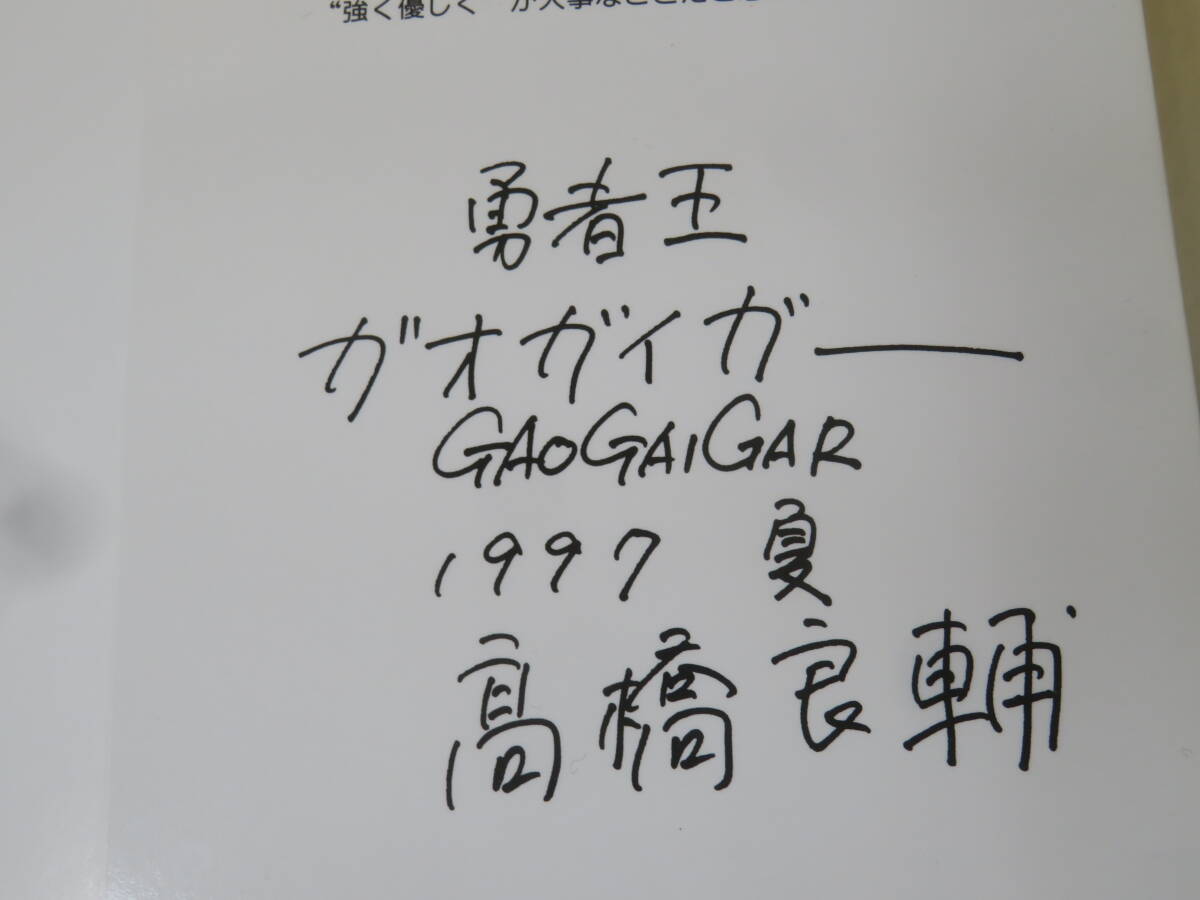 “強く優しく”が大事なことだと
勇者王
ガオガイガー
GAOGAIGAR
1997 夏
高橋良輔